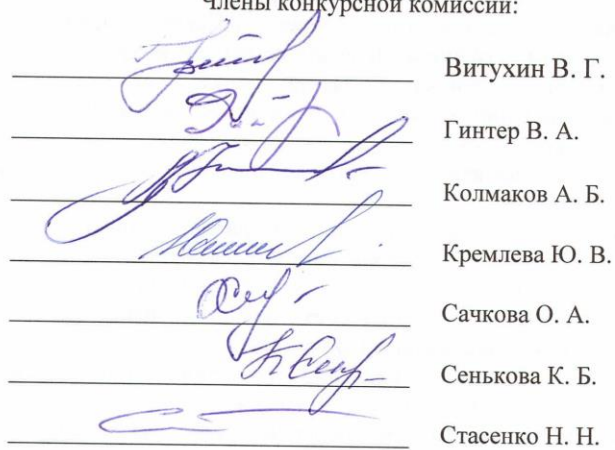 Члены конкурсной комиссии:
Витухин В. Г.
Гинтер В. А.
Колмаков А. Б.
Кремлева Ю. В.
Сачкова О. А.
Сенькова К. Б.
Стасенко Н. Н.